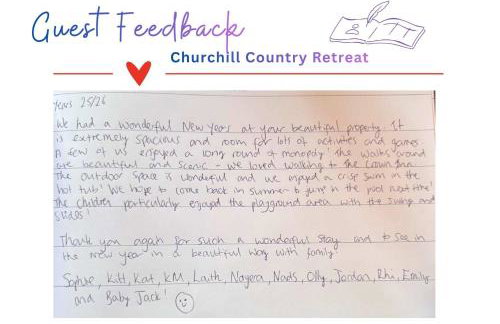 Guest Feedback
Churchill Country Retreat
Years 25/26
We had a wonderful New Years at your beautiful property. It
is extremely spacious and room for lots of activities and games.
A few of us enjoyed a long round of monopoly! The walks around
are beautiful and scenic - we loved walking to the Crown Inn.
The outdoor space is wonderful and we enjoyed a crisp swim in the
hot tub! We hope to come back in summer to jump in the pool next time!
The children particularly enjoyed the playground area with the swing and
slides!
Thank you again for such a wonderful stay and to see in
the new year in a beautiful way with family!
Sophie, Kitt, Kat, KM, Laith, Nayera, Nads, Olly, Jordan, Rhi, Emily
and Baby Jack!